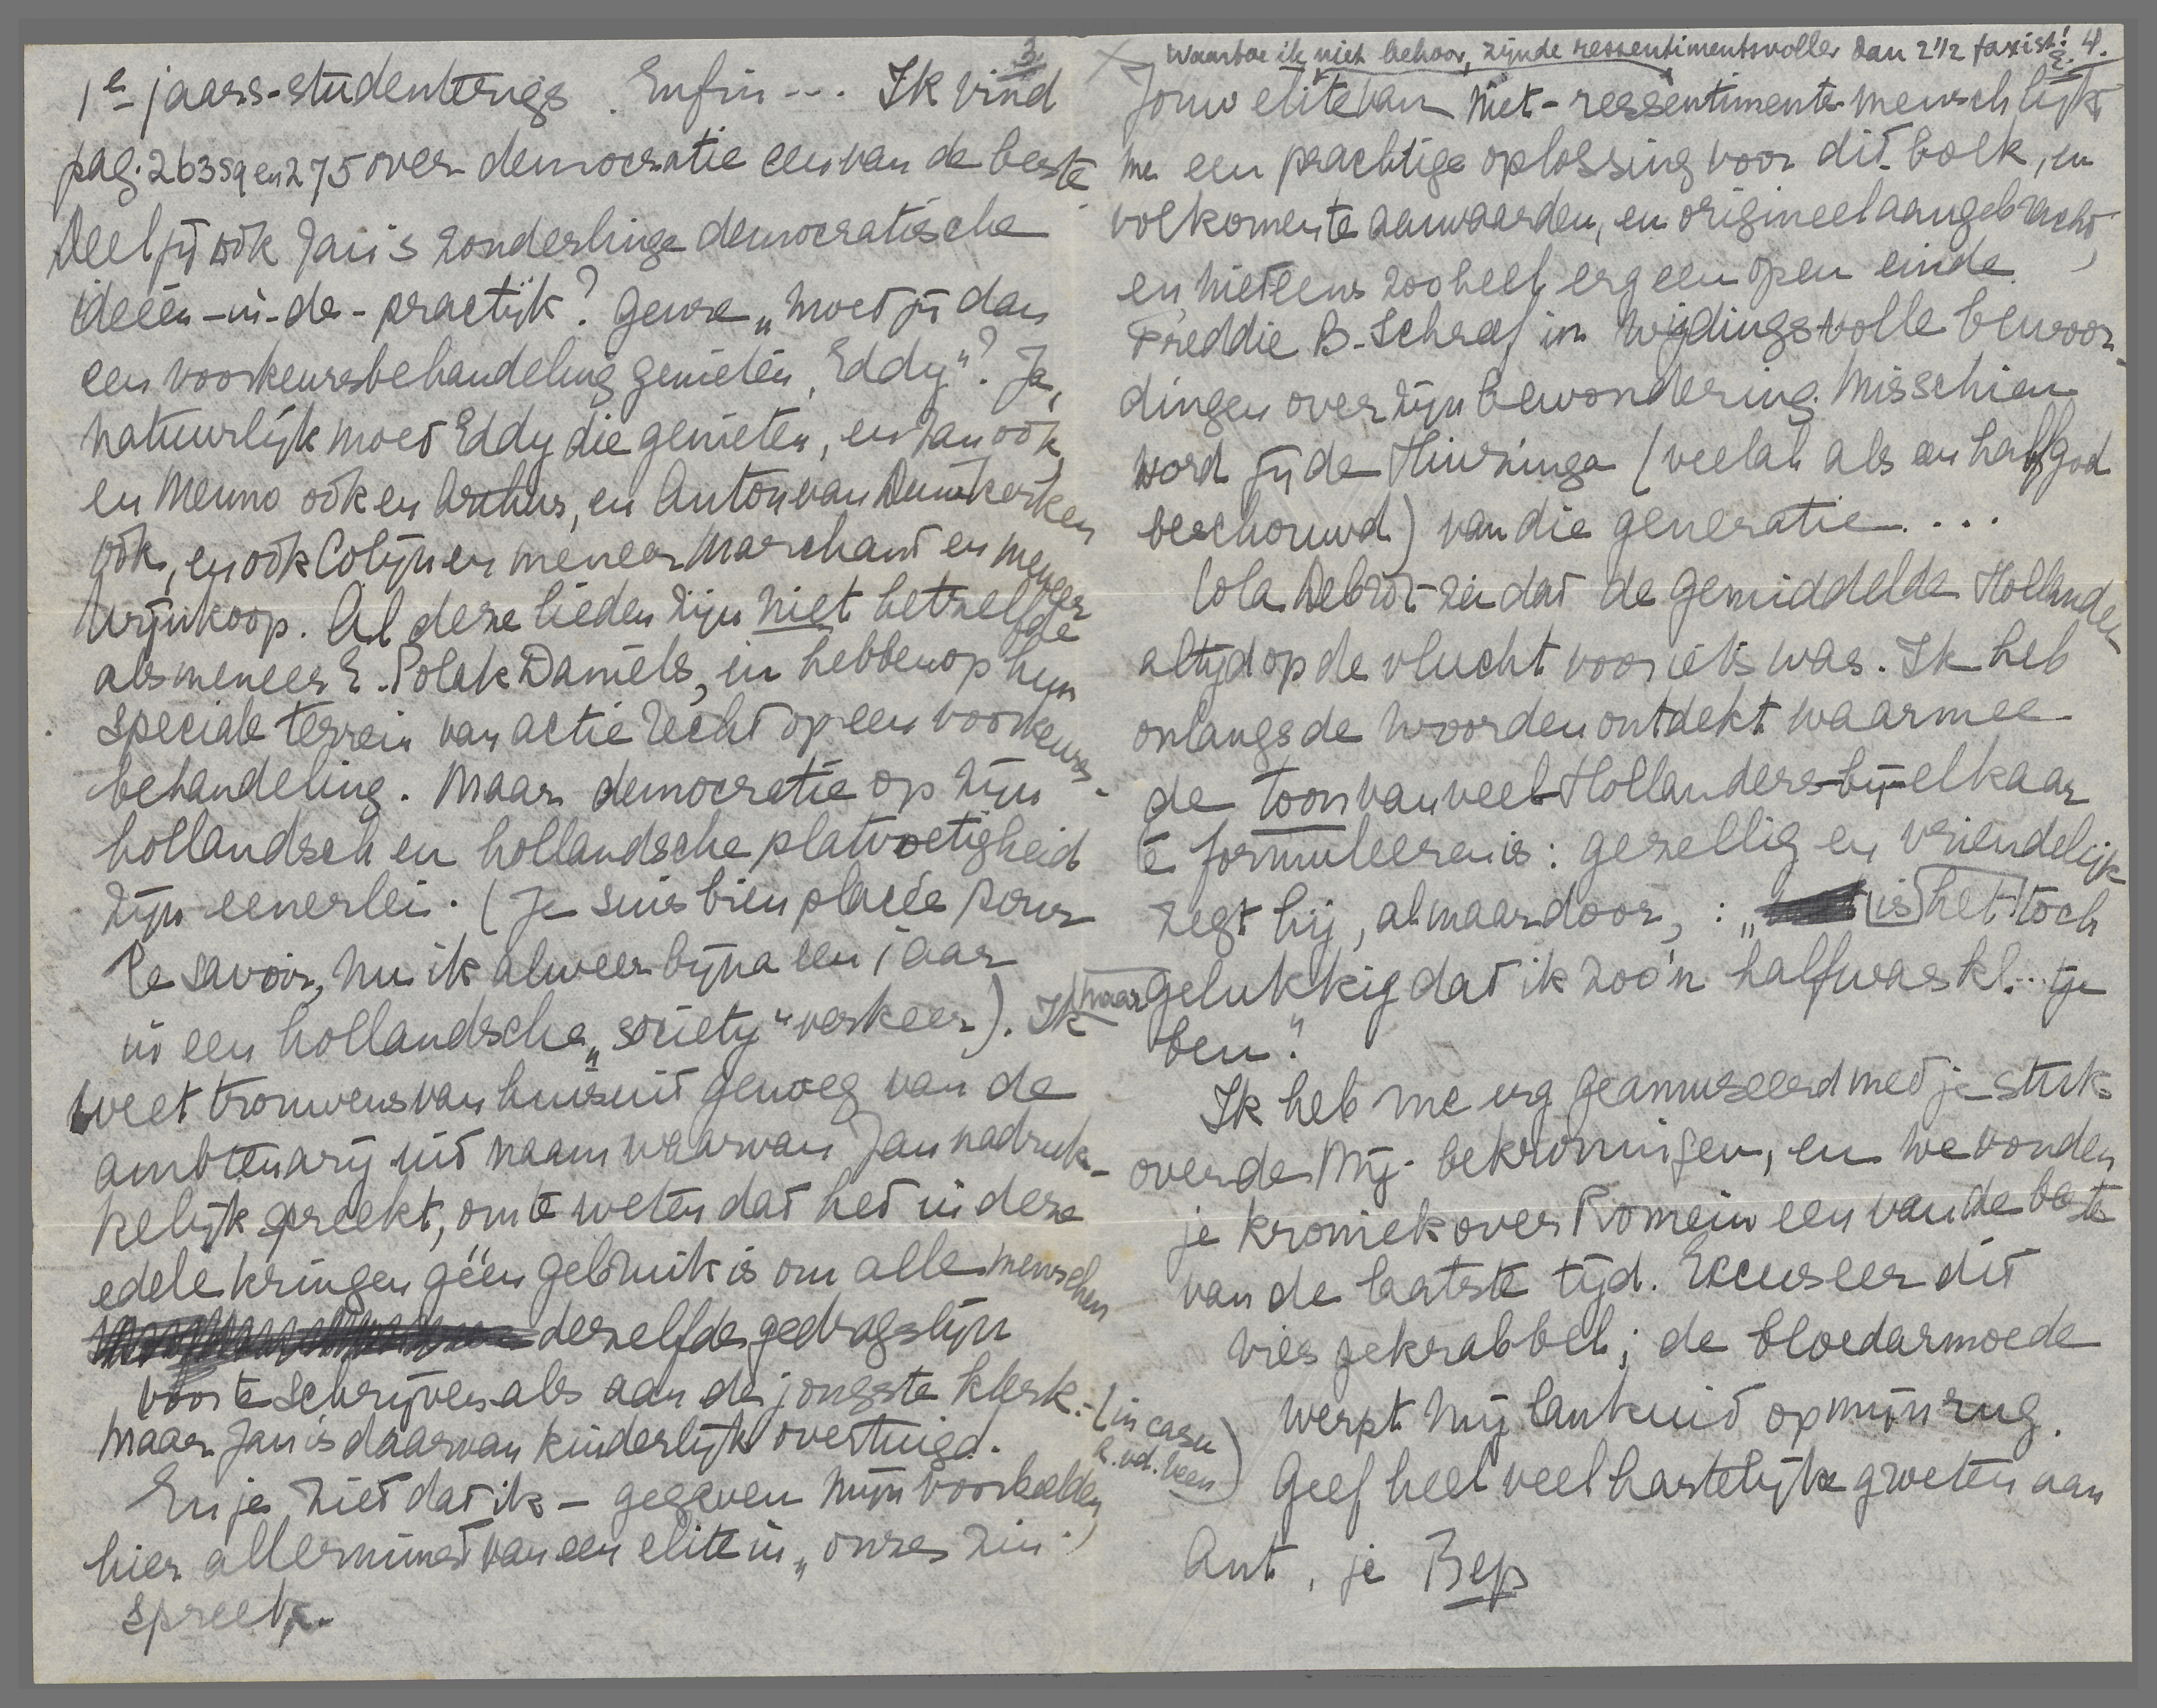 3
1e jaars-studenterigs. Enfin... Ik vind
pag. 263 sq en 275 over democratie een van de beste.
Deel jij ook Jan's zonderlinge democratische
ideeën-in-de-practijk? Genre „moet jij dan
een voorkeursbehandeling genieten, Eddy"? Ja,
natuurlijk moet Eddy die genieten, en Jan ook,
en Menno ook en Arthur, en Anton van Duinkerken
ook, en ook Colijn en meneer Marchant en meneer
Wijnkoop. Al deze lieden zijn niet hetzelfde
als meneer E. Polak Daniels, en hebben op hun
speciale terrein van actie recht op een voorkeurs-
behandeling. Maar democratie op zijn
hollandsch en hollandsche platvoetigheid
zijn eenerlei. (Je suis bien placée pour
le savoir, nu ik alweer bijna een jaar
in een hollandsche „society" verkeer). Ik
weet trouwens van huis uit genoeg van de
ambtenarij uit naam waarvan Jan nadruk-
kelijk spreekt, om te weten dat het in deze
edele kringen géén gebruik is om alle menschen
dezelfde gedragslijn
voor te schrijven als aan de jongste klerk.
Maar Jan is daarvan kinderlijk overtuigd.
En je ziet dat ik – gegeven mijn voorbeelden,
hier allerminst van een elite in „onze" zin
spreek.
4.
X waartoe ik niet behoor, zijnde ressentimentsvoller dan 2½ faxist!
Jouw elite van niet-ressentiments-mensch lijkt
me een prachtige oplossing voor dit boek, en
volkomen te aanvaarden, en origineel aangebracht,
en niet eens zoo heel erg een open einde.
Freddie B. schreef in wijdingsvolle bewoor-
dingen over zijn bewondering. Misschien
word jij de Huizinga (veelal als een halfgod
beschouwd) van die generatie....
Cola Debrot zei dat de gemiddelde Hollander
altijd op de vlucht voor iets was. Ik heb
onlangs de woorden ontdekt waarmee
de toon van veel-Hollanders-bij-elkaar
te formuleeren is: gezellig en vriendelijk
zegt hij, al maar door,: „is het toch
maar gelukkig dat ik zoo'n halfwas kl...tje
ben".
Ik heb me erg geamuseerd met je stuk
over de Mij. bekroningen, en we vonden
je kroniek over Romein een van de beste
van de laatste tijd. Excuseer dit
vies gekrabbel; de bloedarmoede
(in casu
R.v.d. Veen)
werpt mij lankuit op mijn rug.
Geef heel veel hartelijke groeten aan
Ant, je Bep